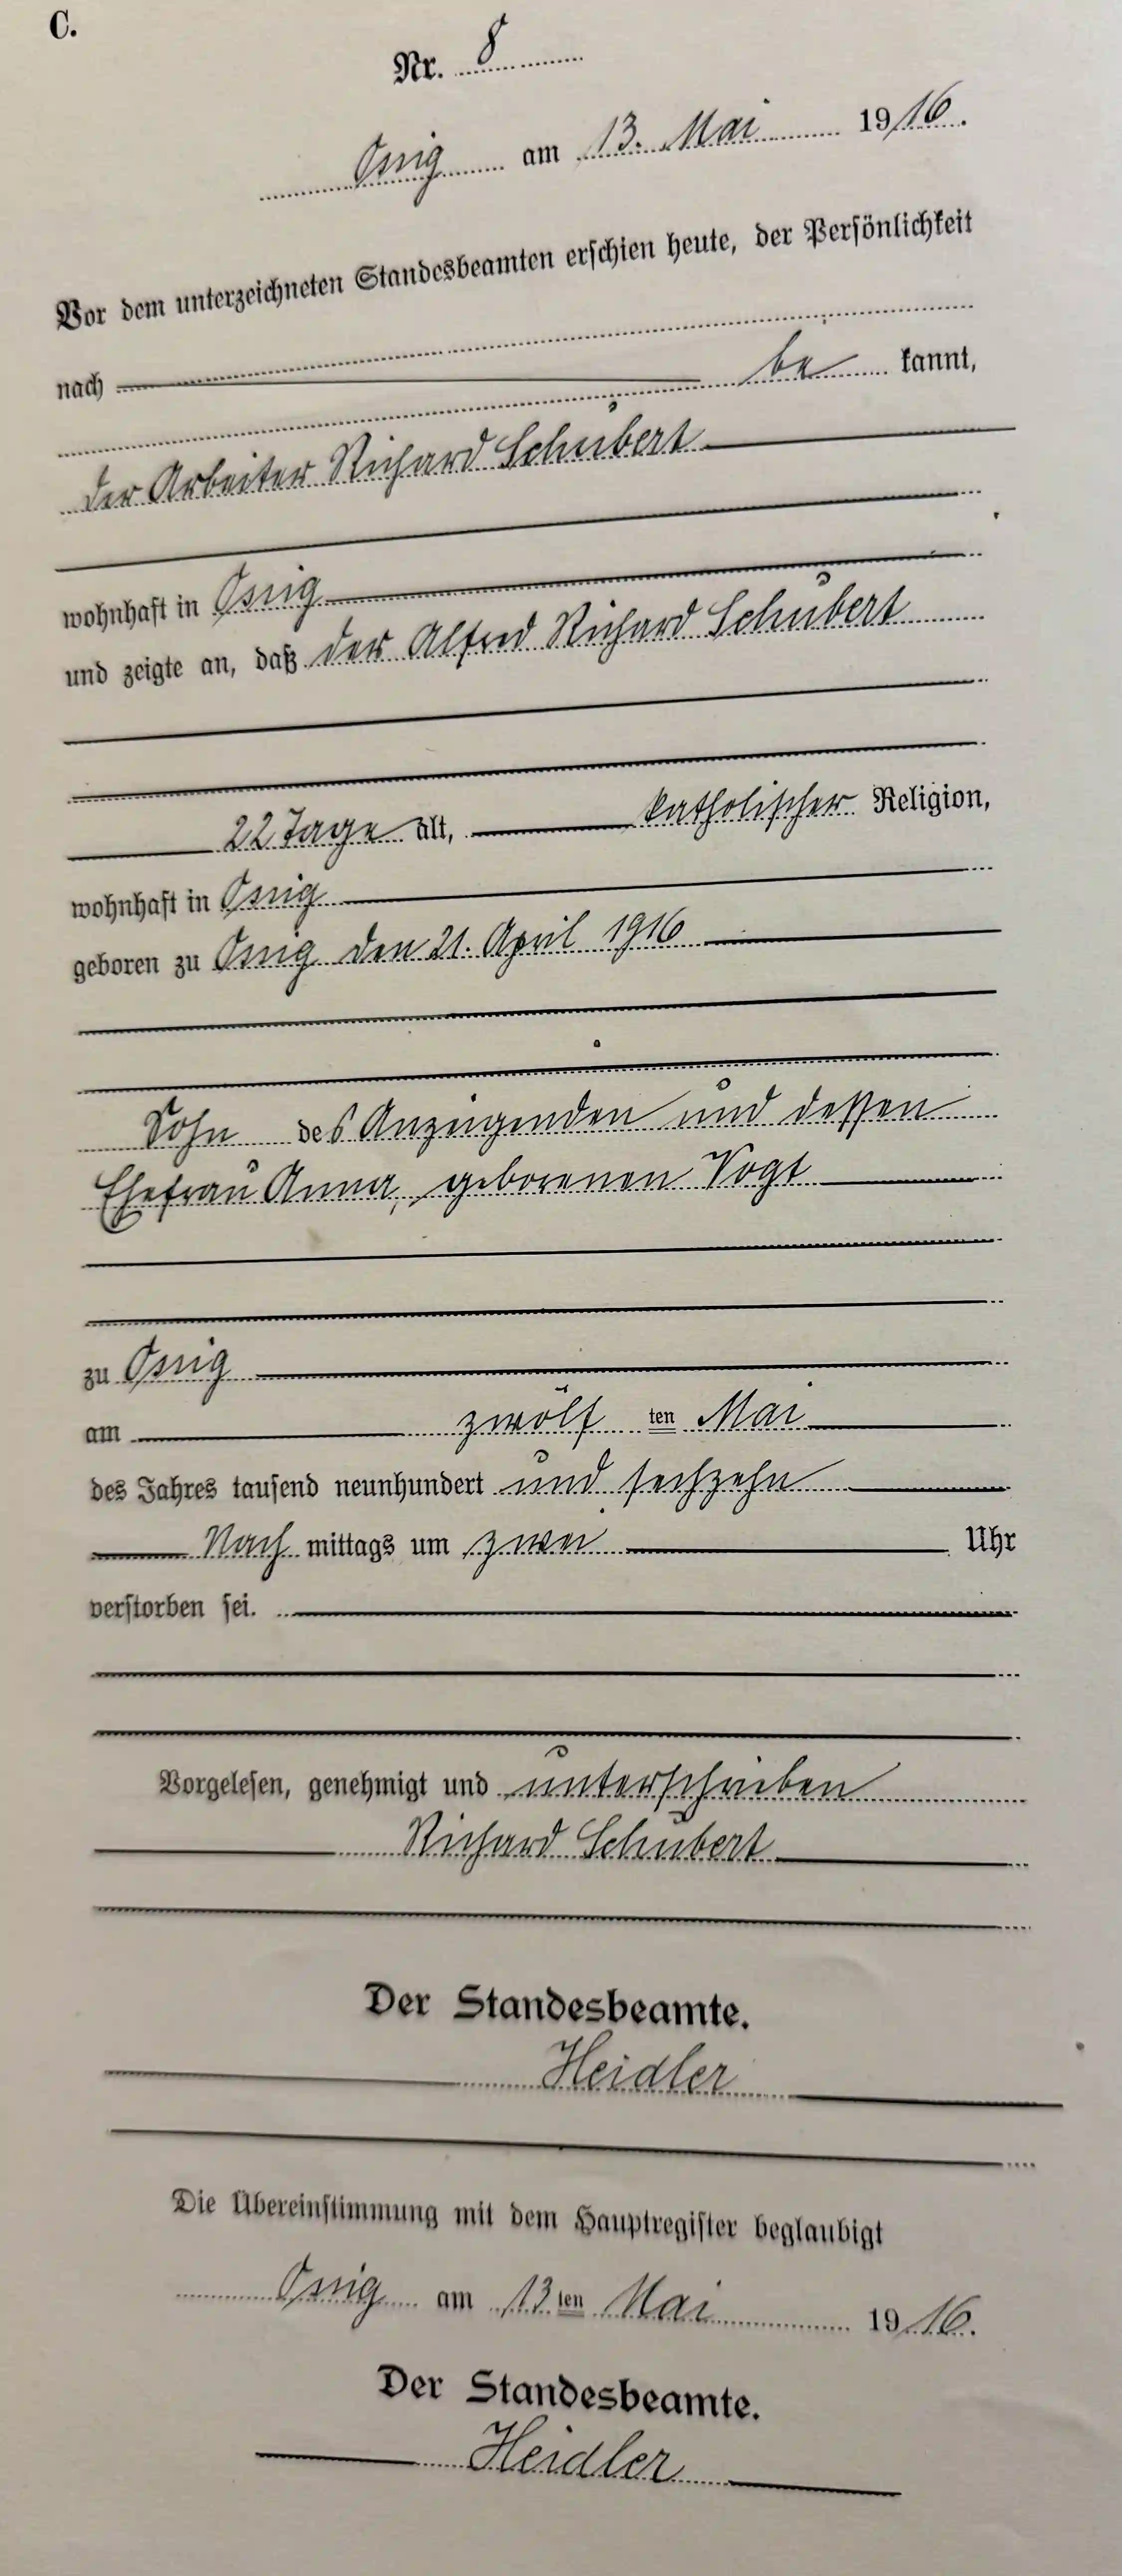 C.
Nr. 8
Ossig am 13. Mai 1916.
Vor dem unterzeichneten Standesbeamten erschien heute, der Persönlichkeit
nach be kannt,
der Arbeiter Richard Schubert
wohnhaft in Ossig
und zeigte an, daß der Alfred Richard Schubert
22 Tage alt, katholischer Religion,
wohnhaft in Ossig
geboren zu Ossig den 21. April 1916
Sohn des Anzeigenden und dessen
Ehefrau Anna, geborenen Vogt
zu Ossig
am zwölf ten Mai
des Jahres tausend neunhundert und sechzehn
Nach mittags um zwei Uhr
verstorben sei.
Vorgelesen, genehmigt und unterschrieben
Richard Schubert
Der Standesbeamte.
Heidler
Die Übereinstimmung mit dem Hauptregister beglaubigt
Ossig am 13ten Mai 1916.
Der Standesbeamte.
Heidler